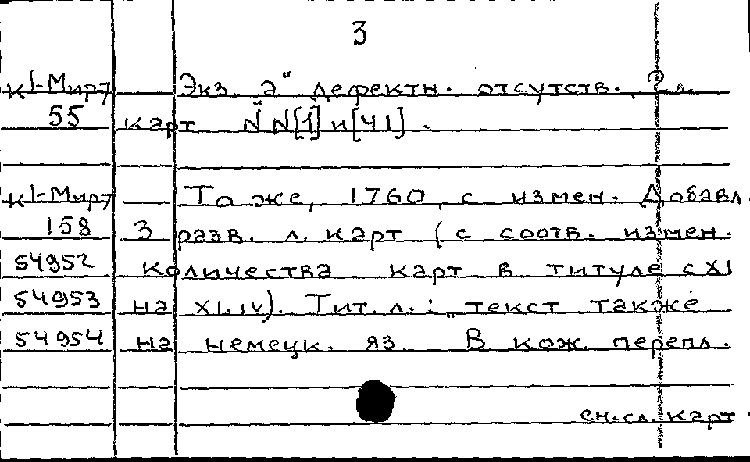 3
К I-Мирт Экз. "а" дефектн. отсутств. 2 л.
55 карт №№[1] и [41].
К I-Мирт То же, 1760, с измен. Добавл.
158 3 разв. л. карт (с соотв. измен.
54952 количества карт в титуле с XLI
54953 на XLIV). Тит. л.: текст также
54954 на немецк. яз. В кож. перепл.
см. сл. карт.